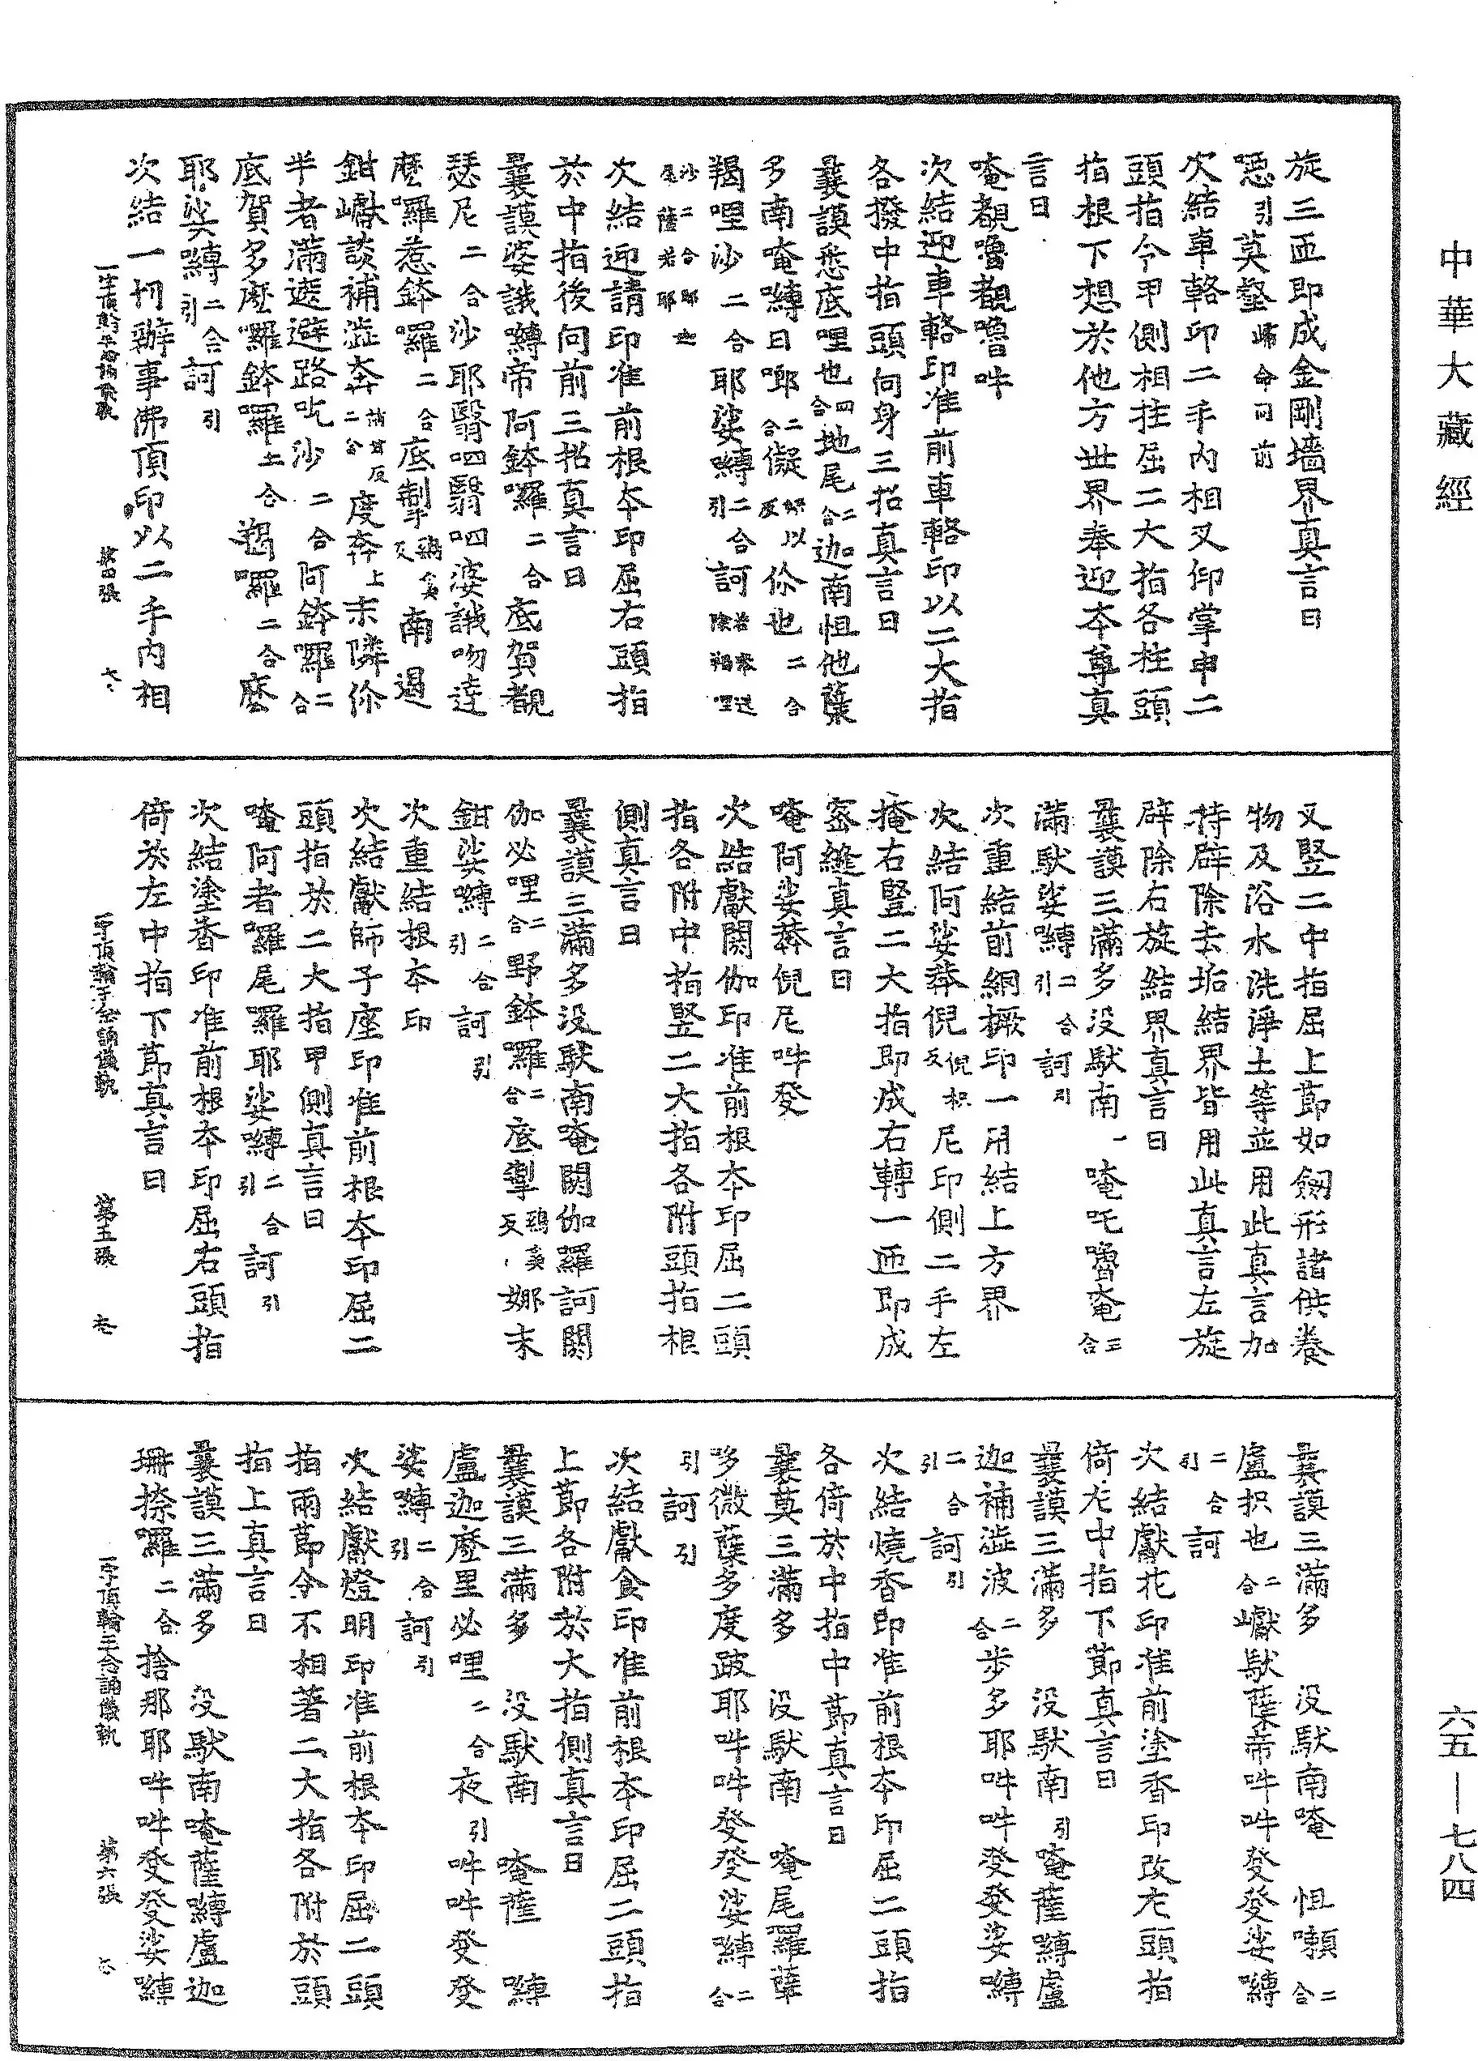 中華大藏經
旋三匝即成金剛墻界真言曰
𠿒引莫壑歸命同前
次結車輅印二手內相叉仰掌申二
頭指令甲側相拄屈二大指各拄頭
指根下想於他方世界奉迎本尊真
言曰
唵覩嚕覩嚕吽
次結迎車輅印准前車輅印以二大指
各撥中指頭向身三招真言曰
曩謨悉底哩也四合地尾二合迦南怛他蘖
多南唵嚩日㘑二合儗以反你也二合
羯哩沙二合耶娑嚩二合引訶
次結迎請印准前根本印屈右頭指
於中指後向前三招真言曰
曩謨婆誐嚩帝阿鉢囉二合底賀覩
瑟尼二合沙耶翳呬翳呬婆誐吻達
麼囉惹鉢囉二合底掣南遏
鉗巘談補澁奔二合度奔上末隣你
半者滿遮避路吒沙二合阿鉢囉二合
底賀多麼囉鉢囉二合羯囉二合麼
耶娑嚩二合引訶引
次結一切辦事佛頂印以二手內相
第四張
叉竪二中指屈上節如劒形諸供養
物及浴水洗淨土等並用此真言加
持辟除去垢結界皆用此真言左旋
辟除右旋結界真言曰
曩謨三滿多没馱南一唵吒嚕唵三合
滿馱娑嚩二合引訶引
次重結前網橛印一用結上方界
次結阿娑莽倪倪枳反尼印側二手左
掩右竪二大指即成右轉一匝即成
密縫真言曰
唵阿娑莽倪尼吽發
次結獻閼伽印准前根本印屈二頭
指各附中指竪二大指各附頭指根
側真言曰
曩謨三滿多没馱南唵閼伽羅訶閼
伽必哩二合野鉢囉二合底掣反娜末
鉗娑嚩二合引訶引
次重結根本印
次結獻師子座印准前根本印屈二
頭指於二大指甲側真言曰
唵阿者囉尾囉耶娑嚩二合引訶引
次結塗香印准前根本印屈右頭指
倚於左中指下節真言曰
一字頂輪王念誦儀軌 第五張
曩謨三滿多 没馱南唵 怛㘈二合
盧枳也二合巘馱蘖帝吽吽發發娑嚩
二合引訶
次結獻花印准前塗香印改左頭指
倚左中指下節真言曰
曩謨三滿多 没馱南引唵薩嚩盧
迦補澁波二合步多耶吽吽發發娑嚩
二合引訶引
次結燒香印准前根本印屈二頭指
各倚於中指中節真言曰
曩莫三滿多 没馱南 唵尾囉蘖
多微蘖多度跛耶吽吽發發娑嚩二合
引訶引
次結獻食印准前根本印屈二頭指
上節各附於大指側真言曰
曩謨三滿多 没馱南 唵薩 嚩
盧迦麼里必哩二合夜引吽吽發發
娑嚩二合引訶引
次結獻燈明印准前根本印屈二頭
指兩節令不相著二大指各附於頭
指上真言曰
曩謨三滿多 没馱南唵薩嚩盧迦
珊捺囉二合捨那耶吽吽發發娑嚩
一字頂輪王念誦儀軌 第六張
六五—七八四